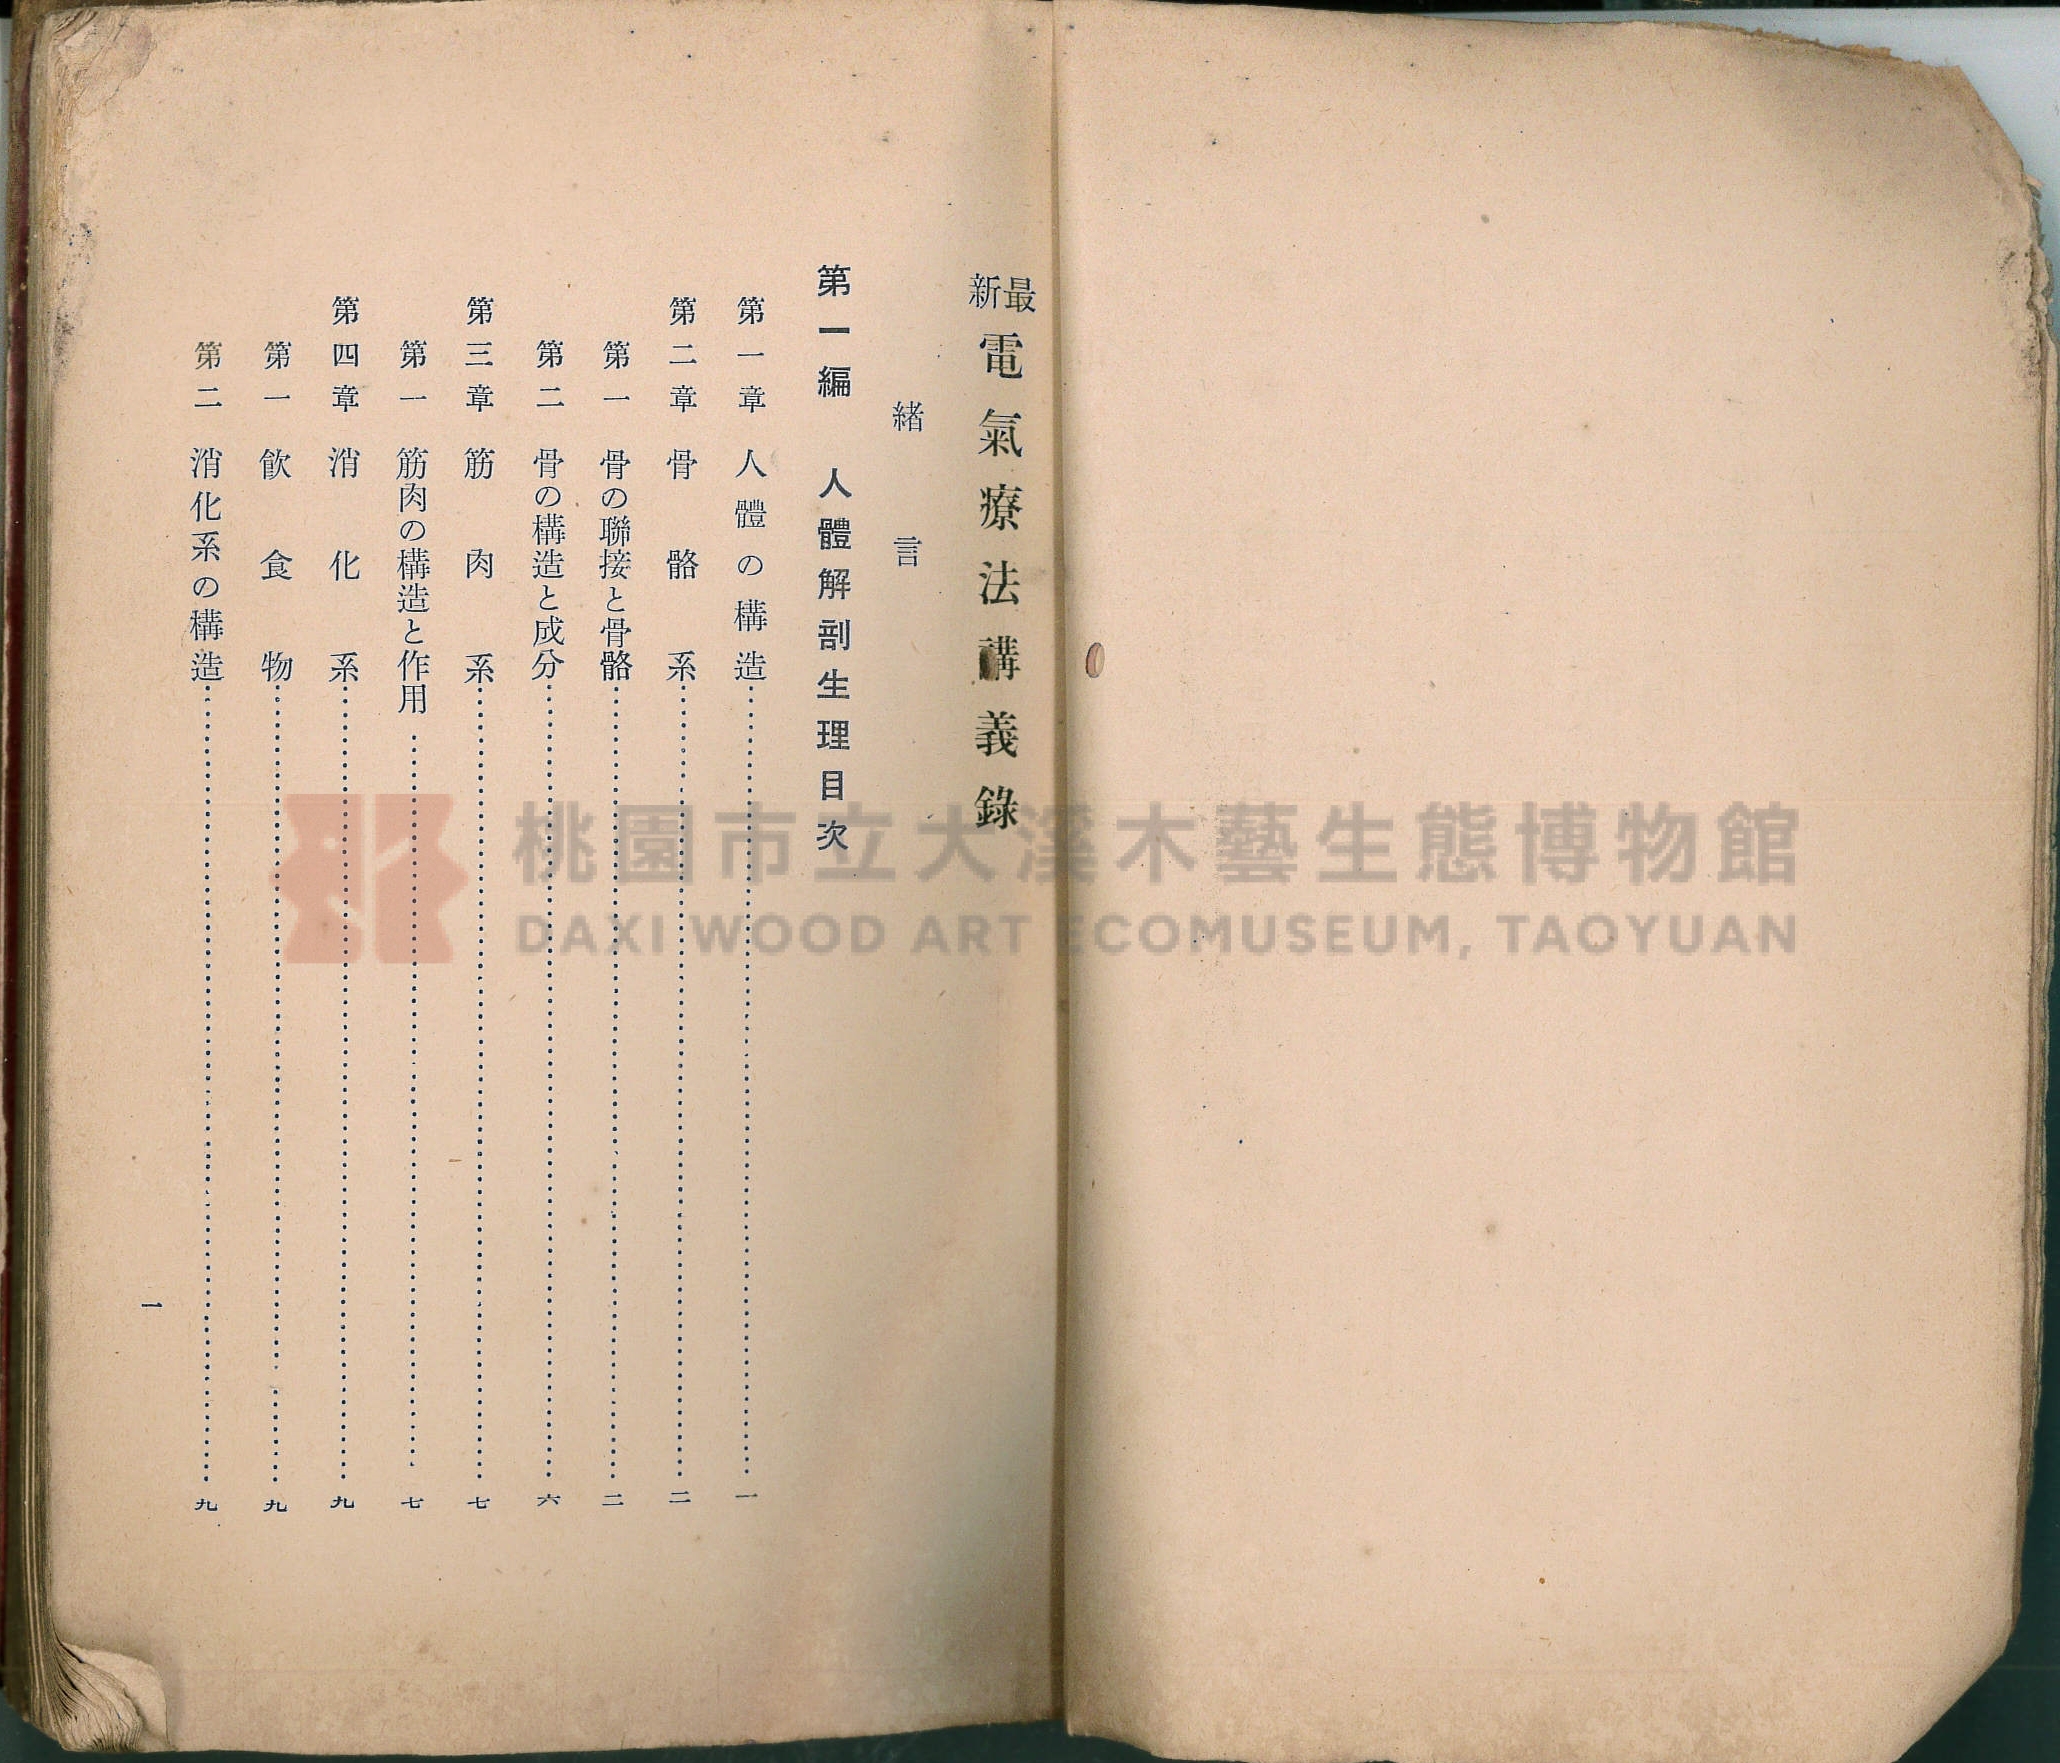 最新 電氣療法講義錄
緒言
第一編 人體解剖生理目次
第一章 人體の構造……一
第二章 骨骼系……二
第一 骨の聯接と骨骼……二
第二 骨の構造と成分……六
第三章 筋肉系……七
第一 筋肉の構造と作用……七
第四章 消化系……九
第一 飲食物……九
第二 消化系の構造……九
一
桃園市立大溪木藝生態博物館
DAXI WOOD ART ECOMUSEUM, TAOYUAN